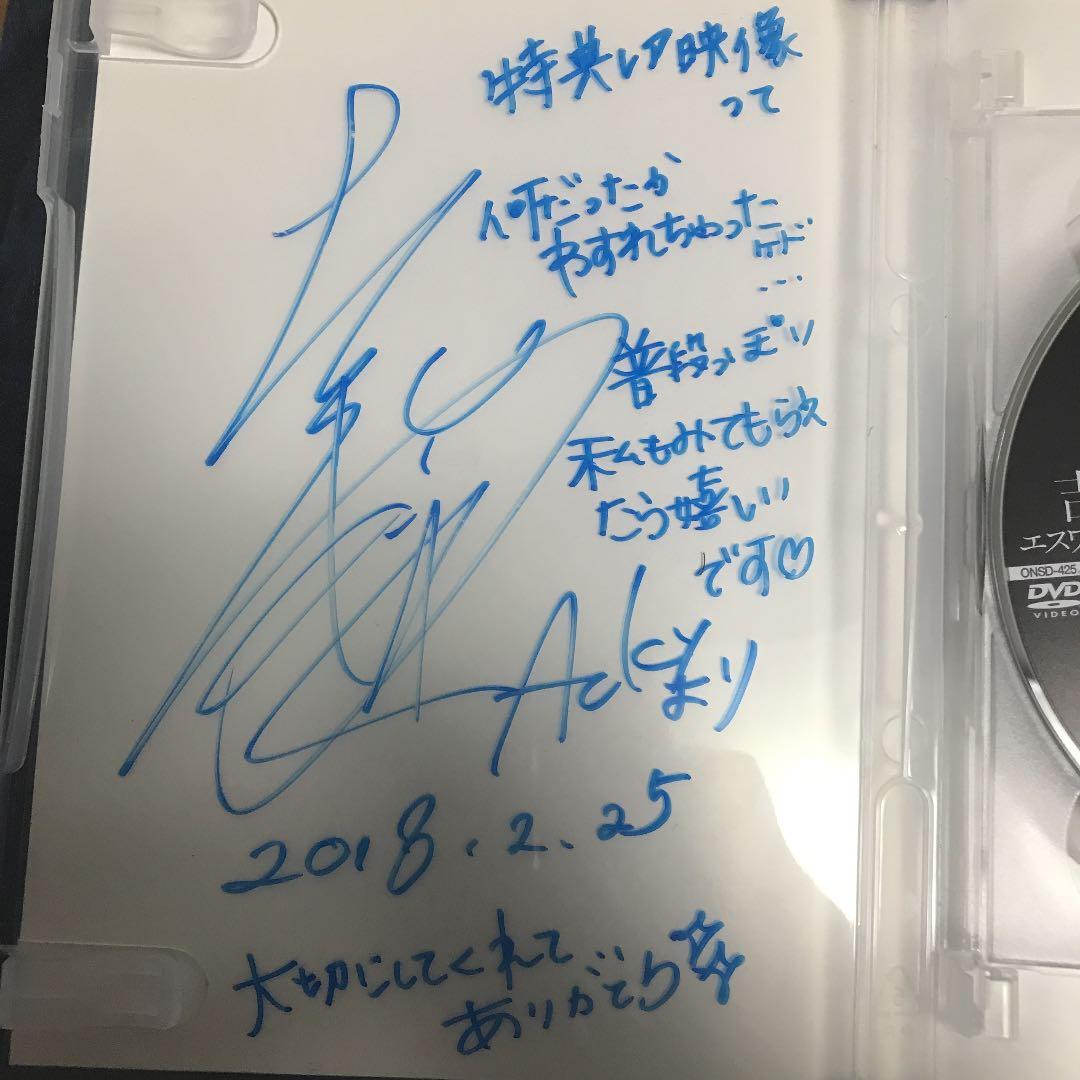 特典レア映像
って
何だったか
わすれちゃった
けど
...
普段っぽい
私もみてもらえ
たら嬉しい
です♡
Acky
より
2018.2.25
大切にしてくれて
ありがとう
吉
エスワ
ONSD-425
DVD
VIDEO